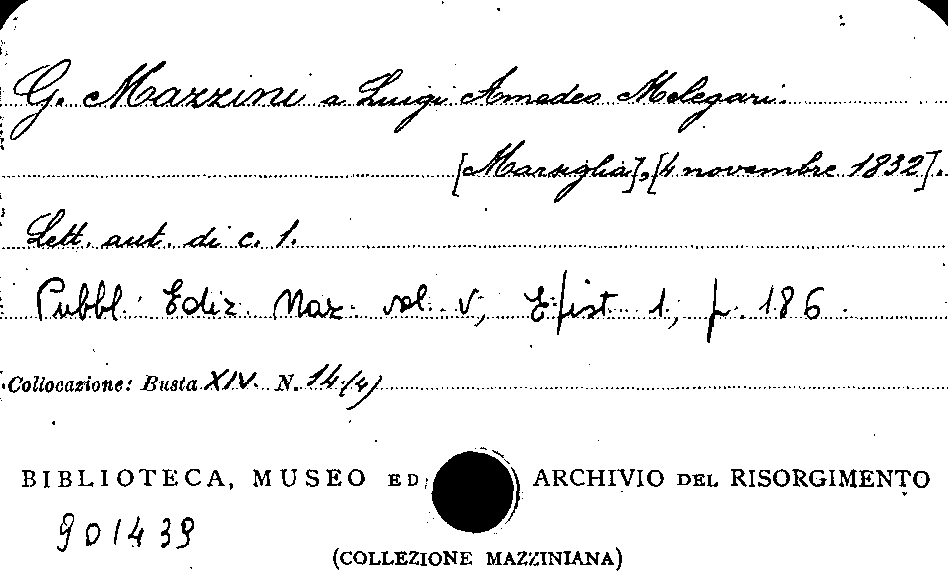 G. Mazzini a Luigi Amedeo Melegari.
[Marsiglia], [4 novembre 1832].
Lett. aut. di c. 1.
Pubbl. Ediz. Naz. vol. V, Epist. 1, p. 186.
Collocazione: Busta XIV. N. 14(4)
BIBLIOTECA, MUSEO ED ARCHIVIO DEL RISORGIMENTO
901439
(COLLEZIONE MAZZINIANA)